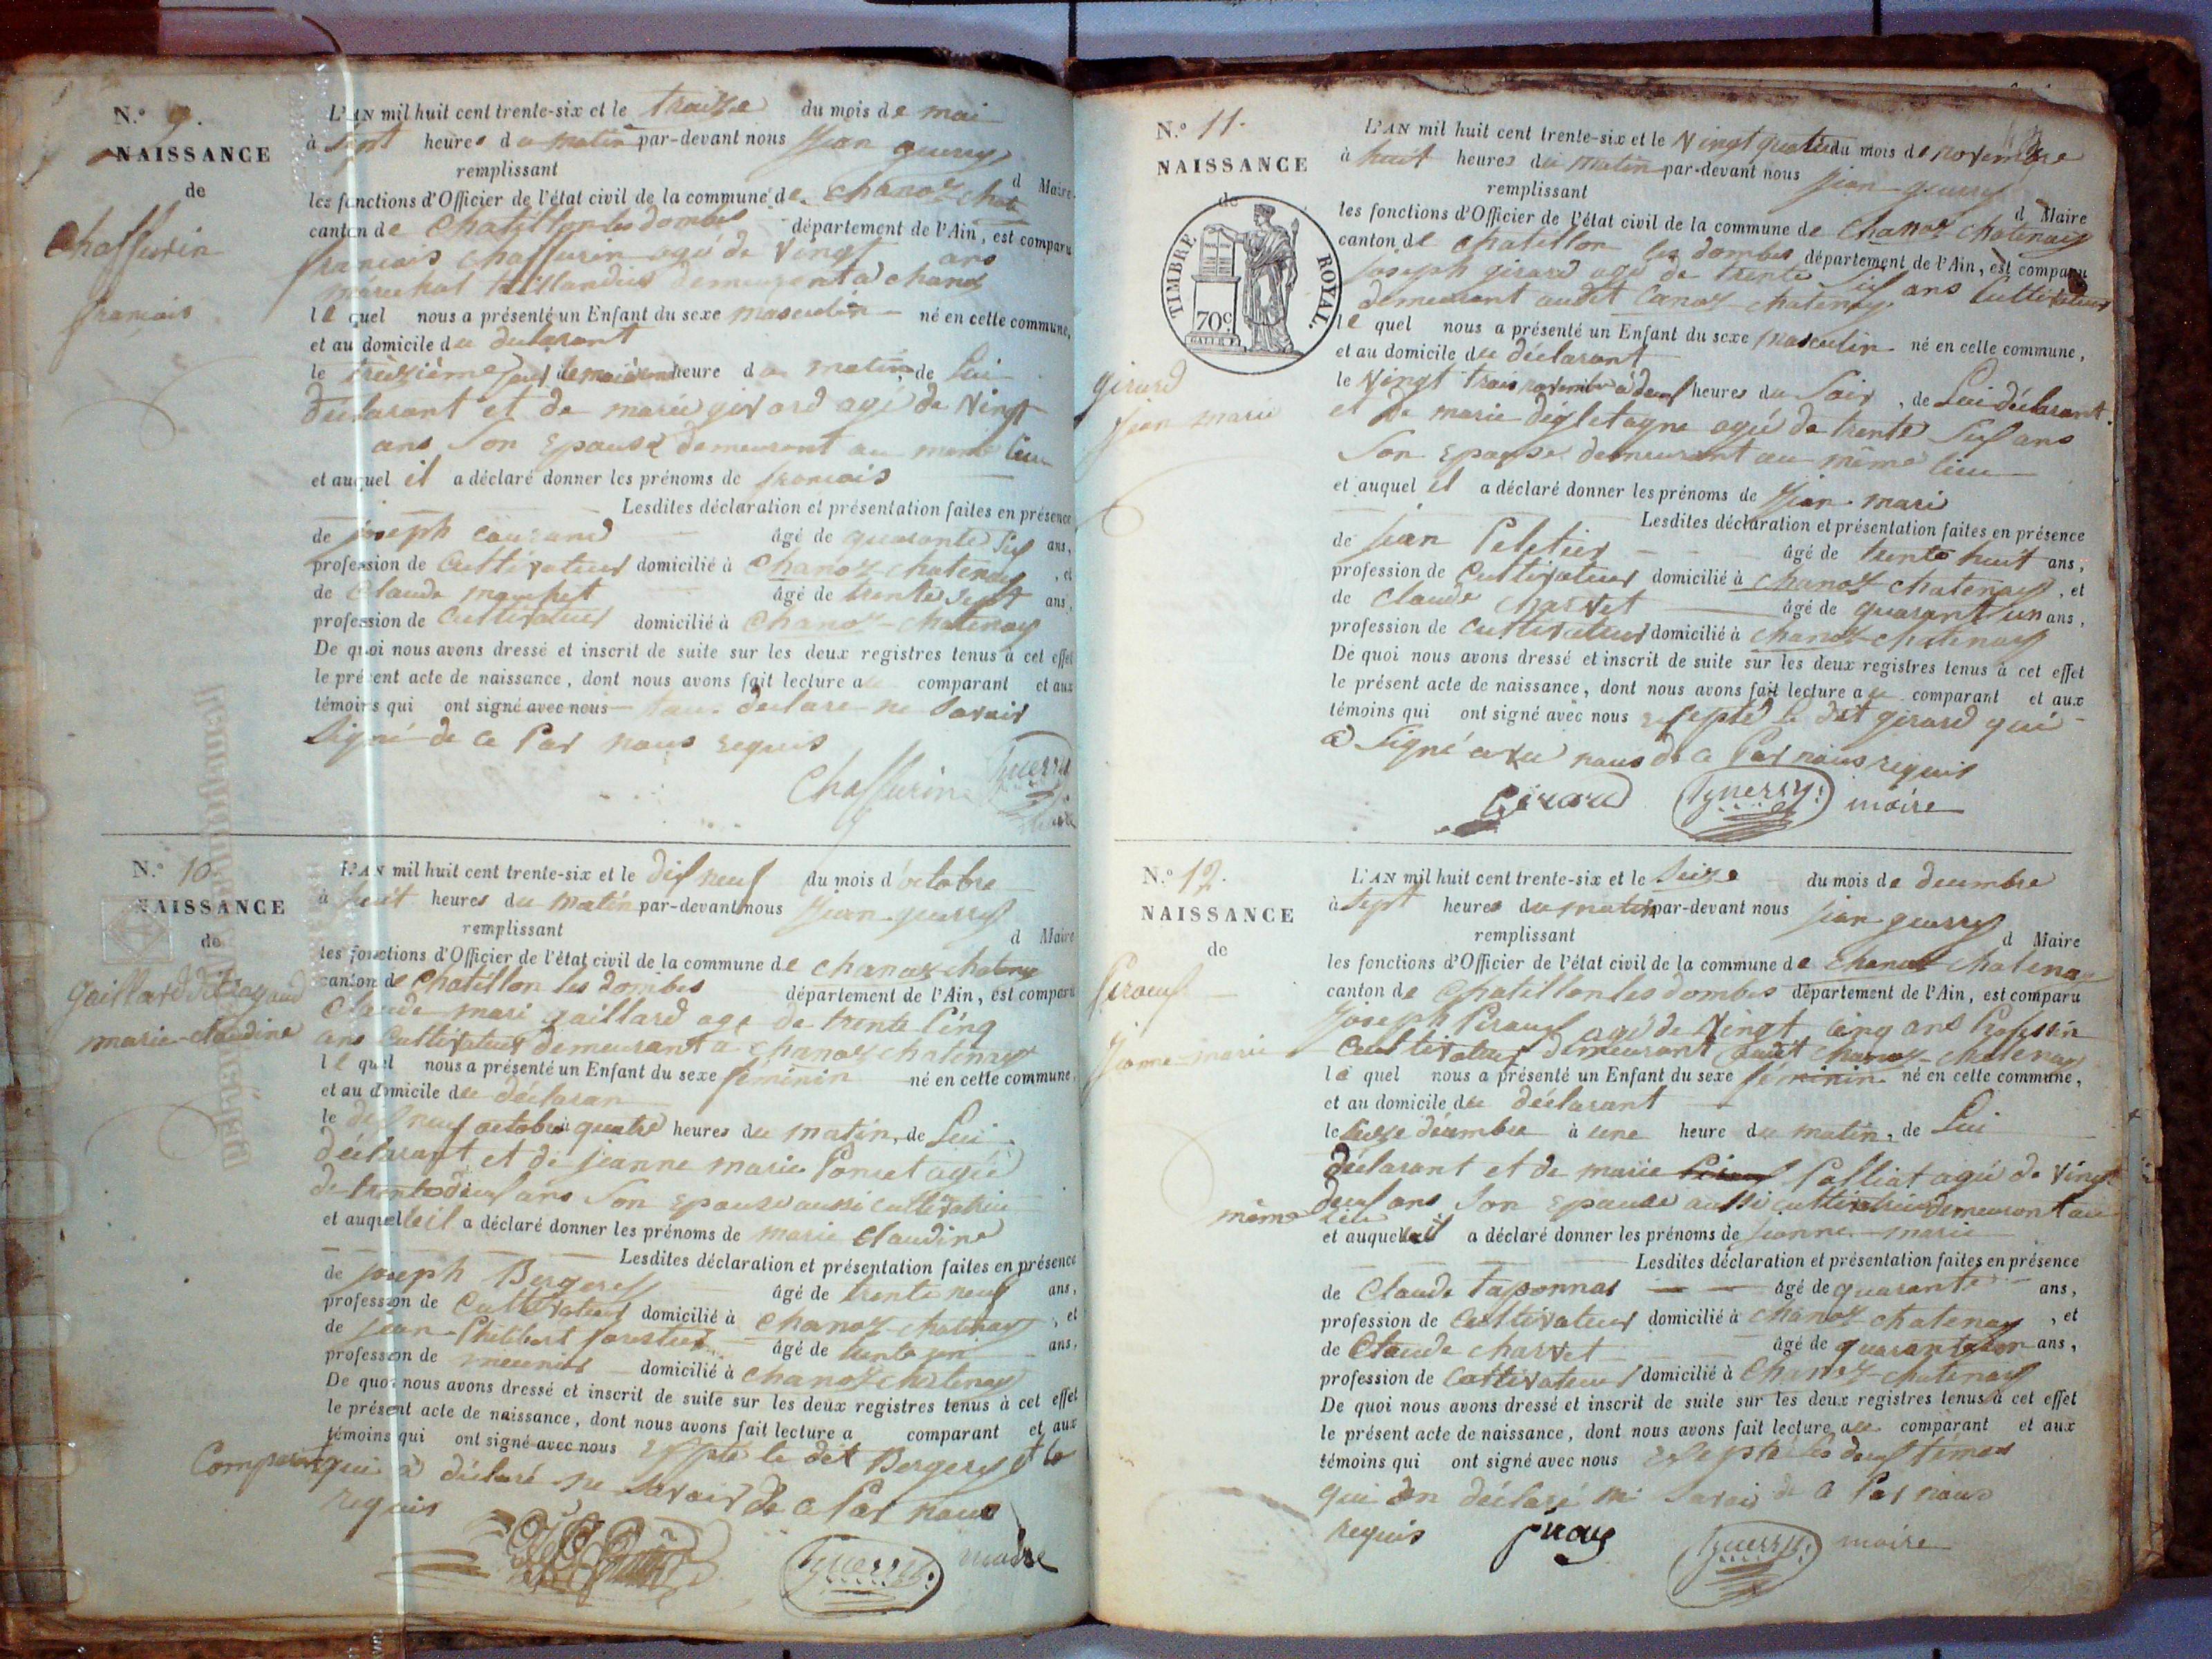 N.° 9.
NAISSANCE
de
Chaffurin
francois
L'AN mil huit cent trente-six et le treize du mois de mai
à sept heures du matin par-devant nous Jean guerry
remplissant d Maire
les fonctions d'Officier de l'état civil de la commune de chanoz chate
canton de Chatillon les dombes département de l'Ain, est comparu
francois chaffurin agé de Vingt ans
marechal taillandier demeurent a chanoz
le quel nous a présenté un Enfant du sexe masculin né en cette commune,
et au domicile du declarant
le treizième heure du matin, de Lui
déclarant et de marie girard agé de Vingt
ans Son Epouse demeurant au meme lieu
et auquel il a déclaré donner les prénoms de francois
Lesdites déclaration et présentation faites en présence
de joseph courand âgé de quarante Six ans,
profession de Cultivateur domicilié à Chanoz chatenay, et
de Claude âgé de trente Sept ans,
profession de Cultivateur domicilié à Chanoz-chatenay
De quoi nous avons dressé et inscrit de suite sur les deux registres tenus à cet effet
le présent acte de naissance, dont nous avons fait lecture au comparant et aux
témoins qui ont signé avec nous declare ne Savoir
Signé de ce Par nous requis
Chaffurin Guerry
N.° 10
NAISSANCE
de
gaillard dit
marie-claudine
L'AN mil huit cent trente-six et le dix neuf du mois d'octobre
à huit heures du matin par-devant nous Jean guerry
remplissant d Maire
les fonctions d'Officier de l'état civil de la commune de chanoz chatenay
canton de Chatillon les dombes département de l'Ain, est comparu
Claude mari gaillard age de trente Cinq
ans Cultivateur demeurant a chanoz chatenay
le quel nous a présenté un Enfant du sexe féminin né en cette commune,
et au domicile du déclaran
le dix neuf octobre à quatre heures du matin, de Lui
déclarant et de jeanne marie Poncet agée
de trente deux ans Son Epouse aussi cultivatrice
et auquel il a déclaré donner les prénoms de marie Claudine
Lesdites déclaration et présentation faites en présence
de joseph Bergery âgé de trente neuf ans,
profession de Cultivateur domicilié à chanoz-chatenay, et
de jean-Philibert forestier âgé de trente un ans,
profession de meunier domicilié à chanoz chatenay
De quoi nous avons dressé et inscrit de suite sur les deux registres tenus à cet effet
le présent acte de naissance, dont nous avons fait lecture a comparant et aux
témoins qui ont signé avec nous Exsepté le dit Bergery et le
Comparant qui a déclaré ne Savoir de ce Par nous
requis
Guerry maire
N.° 11.
NAISSANCE
de
TIMBRE ROYAL.
70c
girard
jean marie
L'AN mil huit cent trente-six et le Vingt quatre du mois de novembre
à huit heures du matin par-devant nous jean guerry
remplissant d Maire
les fonctions d'Officier de l'état civil de la commune de Chanoz chatenay
canton de chatillon les dombes département de l'Ain, est comparu
joseph girard agé de trente Six ans Cultivateur
demeurant audit Canoz-chatenay
le quel nous a présenté un Enfant du sexe masculin né en cette commune,
et au domicile du déclarant
le Vingt trois novembre à deux heures du Soir, de Lui déclarant
et de marie degletagne agée de trente Six ans
Son Epouse demeurant au même lieu
et auquel il a déclaré donner les prénoms de Jean-mari
Lesdites déclaration et présentation faites en présence
de jean Peletier âgé de trente huit ans,
profession de Cultivateur domicilié à chanoz-chatenay, et
de Claude charvet âgé de quarant un ans,
profession de Cultivateur domicilié à chanoz-chatenay
De quoi nous avons dressé et inscrit de suite sur les deux registres tenus à cet effet
le présent acte de naissance, dont nous avons fait lecture au comparant et aux
témoins qui ont signé avec nous exsepté le dit girard qui
a Signé avec nous de ce Par nous requis
Girard Guerry maire
N.° 12.
NAISSANCE
de
Piroux
jeanne-marie
L'AN mil huit cent trente-six et le Seize du mois de decembre
à Sept heures du matin par-devant nous jean guerry
remplissant d Maire
les fonctions d'Officier de l'état civil de la commune de chanoz chatenay
canton de Chatillon les dombes département de l'Ain, est comparu
joseph Piroux agé de Vingt cinq ans Profession
Cultivateur demeurant audit chanoz-chatenay
le quel nous a présenté un Enfant du sexe féminin né en cette commune,
et au domicile du déclarant
le Seize décembre à une heure du matin, de Lui
déclarant et de marie Palliat agée de Vingt
deux ans Son Epouse aussi cultivatrice demeurant au
même lieu
et auquel il a déclaré donner les prénoms de jeanne-marie
Lesdites déclaration et présentation faites en présence
de Claude Taponnas âgé de quarante ans,
profession de Cultivateur domicilié à chanoz-chatenay, et
de Claude charvet âgé de quarante un ans,
profession de Cultivateur domicilié à Chanoz-chatenay
De quoi nous avons dressé et inscrit de suite sur les deux registres tenus à cet effet
le présent acte de naissance, dont nous avons fait lecture au comparant et aux
témoins qui ont signé avec nous Exsepté les deux temoins
qui on déclaré ne Savoir de ce Par nous
requis Guerry maire